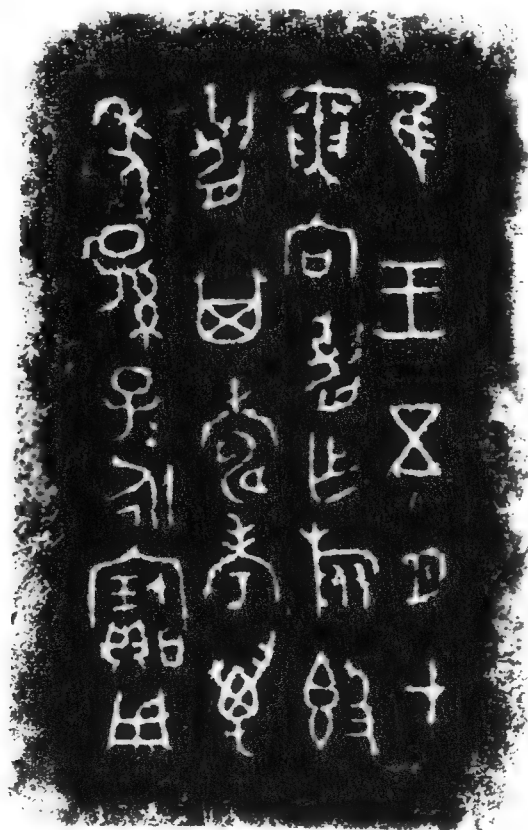 隹王五月甲
寅向乍旅𣪘
其壽考萬
年孫子子永寶用